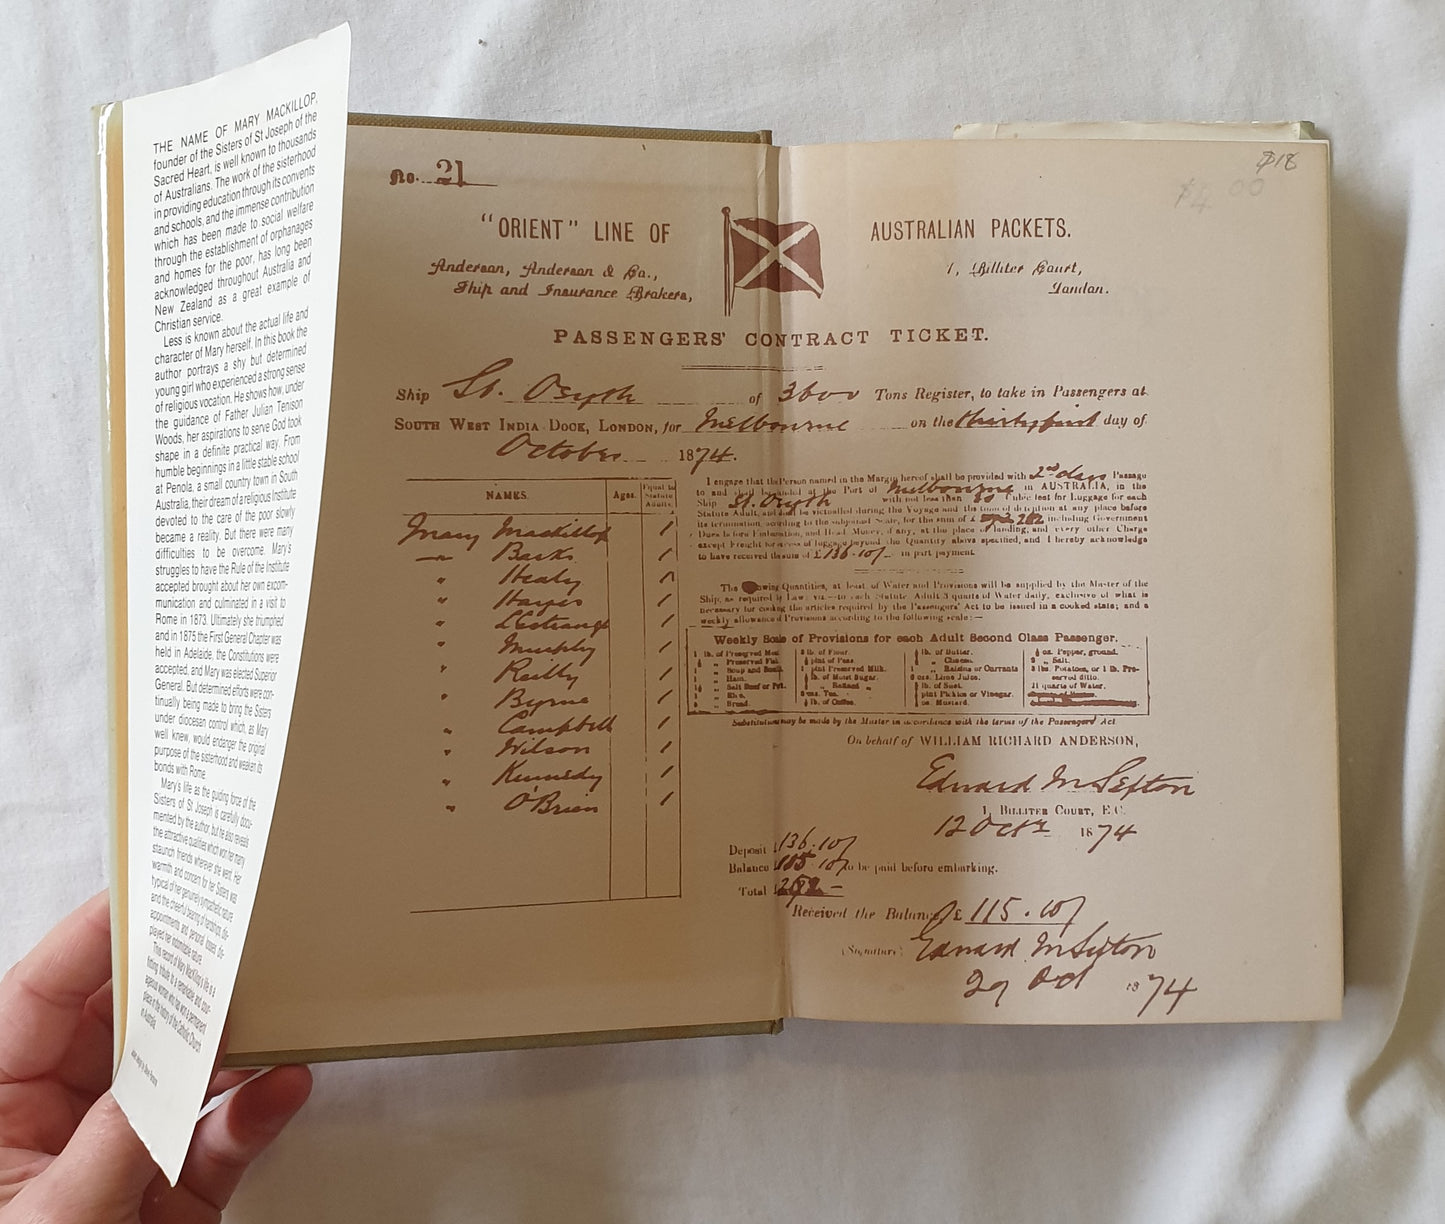 THE NAME OF MARY MACKILLOP,
founder of the Sisters of St Joseph of the
Sacred Heart, is well known to thousands
of Australians. The work of the sisterhood
in providing education through its convents
and schools, and the immense contribution
which has been made to social welfare
through the establishment of orphanages
and homes for the poor, has long been
acknowledged throughout Australia and
New Zealand as a great example of
Christian service.
Less is known about the actual life and
character of Mary herself. In this book the
author portrays a shy but determined
young girl who experienced a strong sense
of religious vocation. He shows how, under
the guidance of Father Julian Tenison
Woods, her aspirations to serve God took
shape in a definite practical way. From
humble beginnings in a little stable school
at Penola, a small country town in South
Australia, their dream of a religious Institute
devoted to the care of the poor slowly
became a reality. But there were many
difficulties to be overcome. Mary's
struggles to have the Rule of the Institute
accepted brought about her own excom-
munication and culminated in a visit to
Rome in 1873. Ultimately she triumphed
and in 1875 the First General Chapter was
held in Adelaide, the Constitutions were
accepted, and Mary was elected Superior
General. But determined efforts were con-
tinually being made to bring the Sisters
under diocesan control which, as Mary
well knew, would endanger the original
purpose of the sisterhood and weaken its
bonds with Rome.
Mary's life as the guiding force of the
Sisters of St Joseph is carefully docu-
mented by the author, but he also reveals
the attractive qualities which won her many
staunch friends wherever she went. Her
warmth and concern for her Sisters was
typical of her genuinely sympathetic nature
and the cheerful bearing of hardships, dis-
appointments and personal losses dis-
played her indomitable nature.
This record of Mary MacKillop's life is a
fitting tribute to a remarkable and cour-
ageous woman who has won a permanent
place in the history of the Catholic Church
in Australia.
$18
$4.00
No. 21
"ORIENT" LINE OF AUSTRALIAN PACKETS.
Anderson, Anderson & Co., 1, Billiter Court,
Ship and Insurance Brokers, London.
PASSENGERS' CONTRACT TICKET.
Ship St. Osyth of 3600 Tons Register, to take in Passengers at
SOUTH WEST INDIA DOCK, LONDON, for Melbourne on the thirty first day of
October 1874.
NAMES. Ages. Equal to Statute Adults.
Mary Mackillop 1
" Bark 1
" Healy 1
" Hayes 1
" L'Estrange 1
" Murphy 1
" Reilly 1
" Byrne 1
" Campbell 1
" Wilson 1
" Kennedy 1
" O'Brien 1
I engage that the Person named in the Margin hereof shall be provided with 2nd class Passage
to and shall be landed at the Port of Melbourne in AUSTRALIA, in the
Ship St. Osyth with not less than Cubic feet for Luggage for each
Statute Adult, and shall be victualled during the Voyage and the time of detention at any place before
its termination, according to the subjoined Scale, for the sum of £ 252 including Government
Dues before Embarkation, and Head Money, if any, at the place of landing, and every other Charge
except Freight for excess of luggage beyond the Quantity above specified, and I hereby acknowledge
to have received the sum of £136.10/- in part payment.
The following Quantities, at least, of Water and Provisions will be supplied by the Master of the
Ship, as required by Law, viz.—to each Statute Adult 3 quarts of Water daily, exclusive of what is
necessary for cooking the articles required by the Passengers' Act to be issued in a cooked state; and a
weekly allowance of Provisions according to the following scale:—
Weekly Scale of Provisions for each Adult Second Class Passenger.
Substitutions may be made by the Master in accordance with the terms of the Passengers' Act
On behalf of WILLIAM RICHARD ANDERSON,
Edward McSefton
1, BILLITER COURT, E.C.
12 Octr 1874
Deposit £136.10/
Balance £ 10/ to be paid before embarking.
Total £
Received the Balance £ 115.10/
(Signature) Edward McSefton
29 Oct 1874